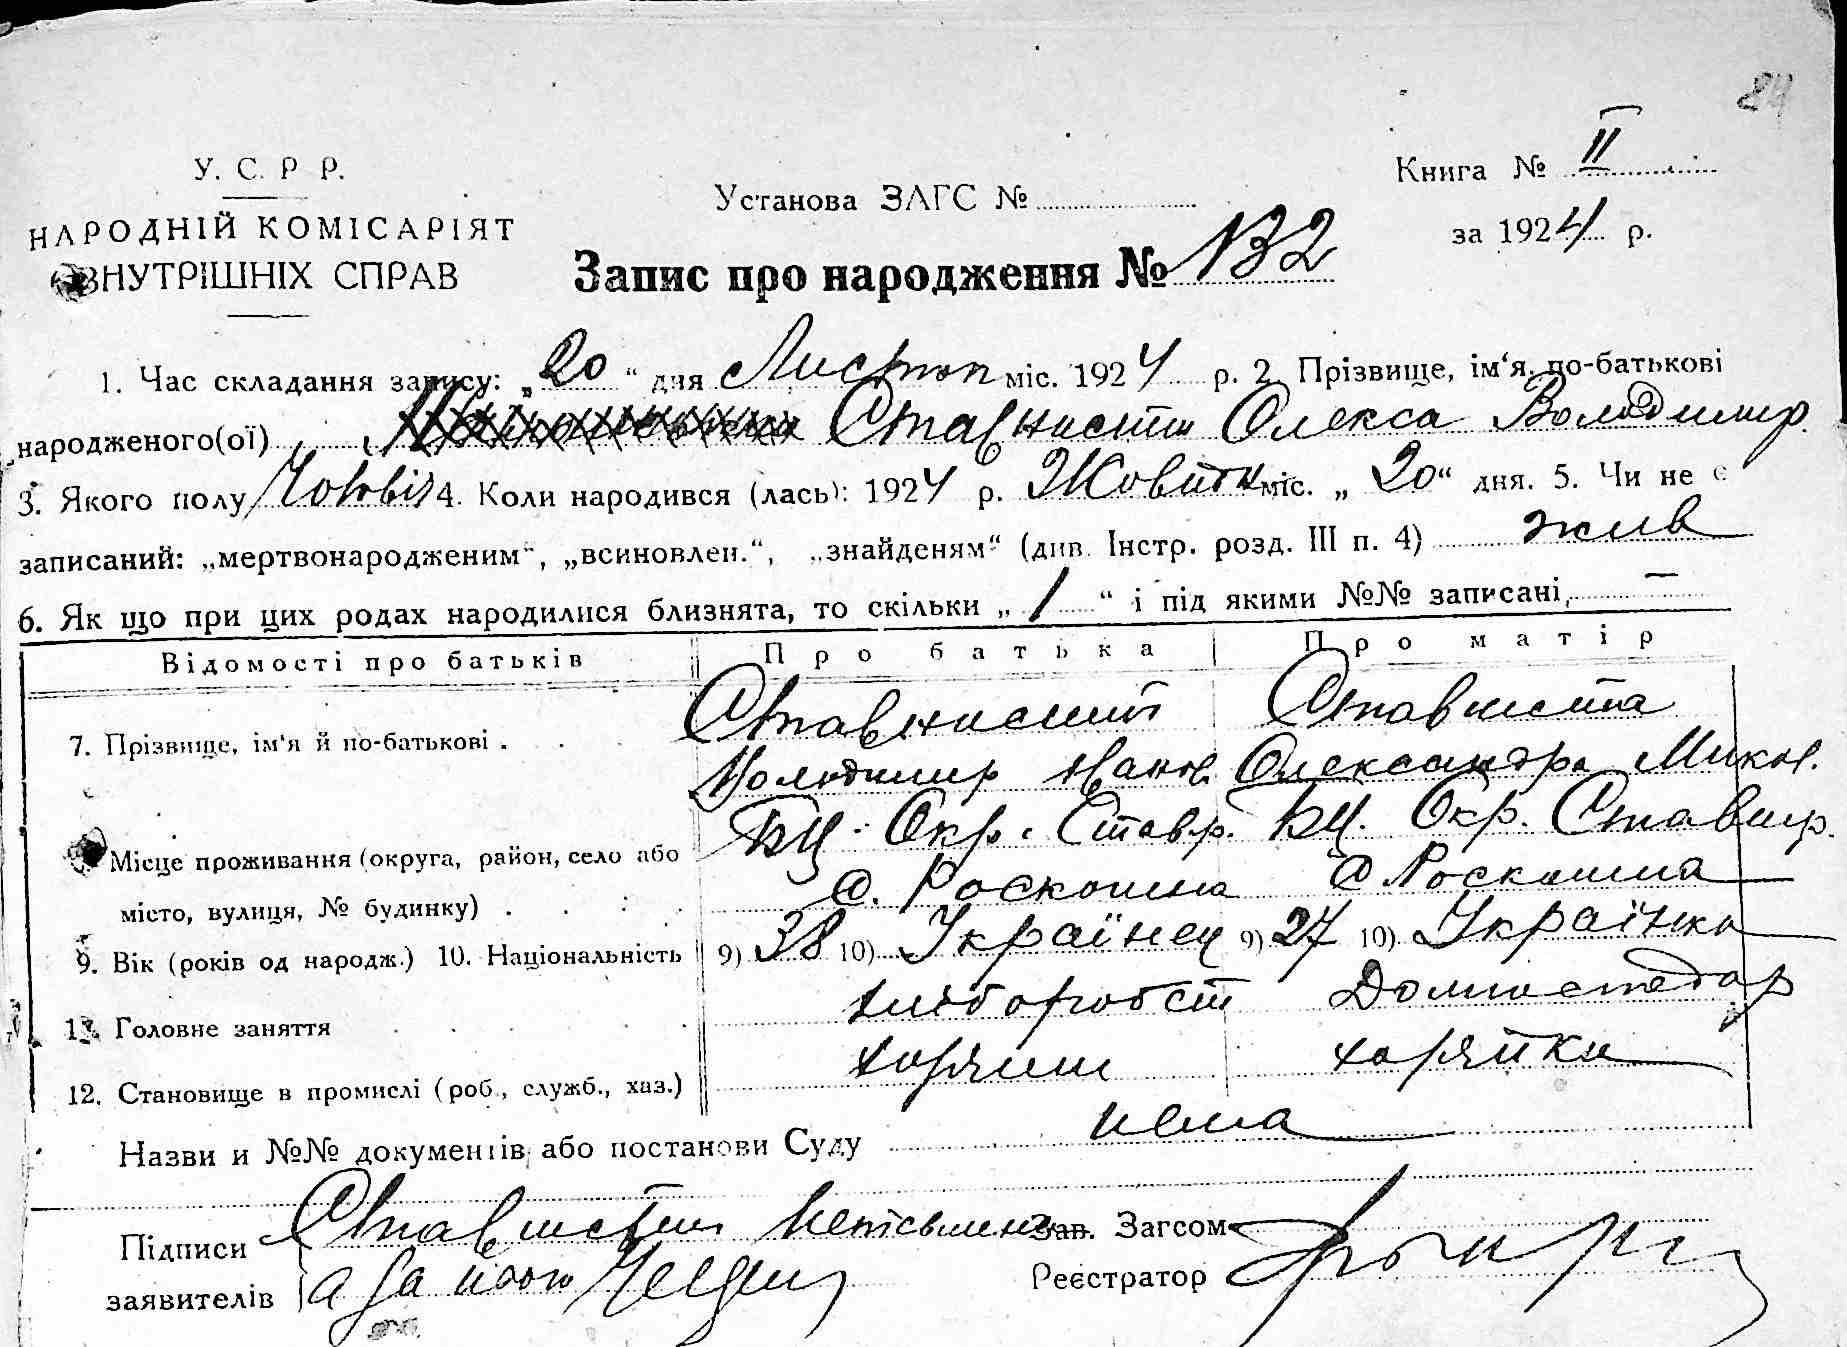 84
У. С. Р Р.
НАРОДНІЙ КОМІСАРІЯТ
ВНУТРІШНІХ СПРАВ
Установа ЗАГС №
Книга № II
за 1924 р.
Запис про народження № 132
1. Час складання запису: „20“ дня Листоп міс. 1924 р. 2. Прізвище, ім‘я, по-батькові
народженого(ої) Ставнистий Олекса Володимир.
3. Якого полу Чоловіч 4. Коли народився (лась): 1924 р. Жовтн міс. „20“ дня. 5. Чи не є
записаний: „мертвонародженим“, „всиновлен.“, „знайденям“ (див. Інстр. розд. III п. 4) жив
6. Як що при цих родах народилися близнята, то скільки „1“ і під якими №№ записані, —
Відомості про батьків Про батька Про матір
7. Прізвище, ім‘я й по-батькові . Ставнистий Ставниста
Володимир Іванов. Олександра Микол.
БЦ. Окр. Ставр. БЦ. Окр. Ставищ.
Місце проживання (округа, район, село або
місто, вулиця, № будинку) . с. Роскошна с Роскошна
9. Вік (років од народж.) 10. Національність 9) 38 10) Українец 9) 27 10) Українка
11. Головне заняття хлібороб Домгосподар
12. Становище в промислі (роб., служб., хаз.) хазяїн хазяйка
Назви и №№ документів або постанови Суду нема
Підписи Ставнистий неписьмен Зав. Загсом
заявителів а за його Реєстратор